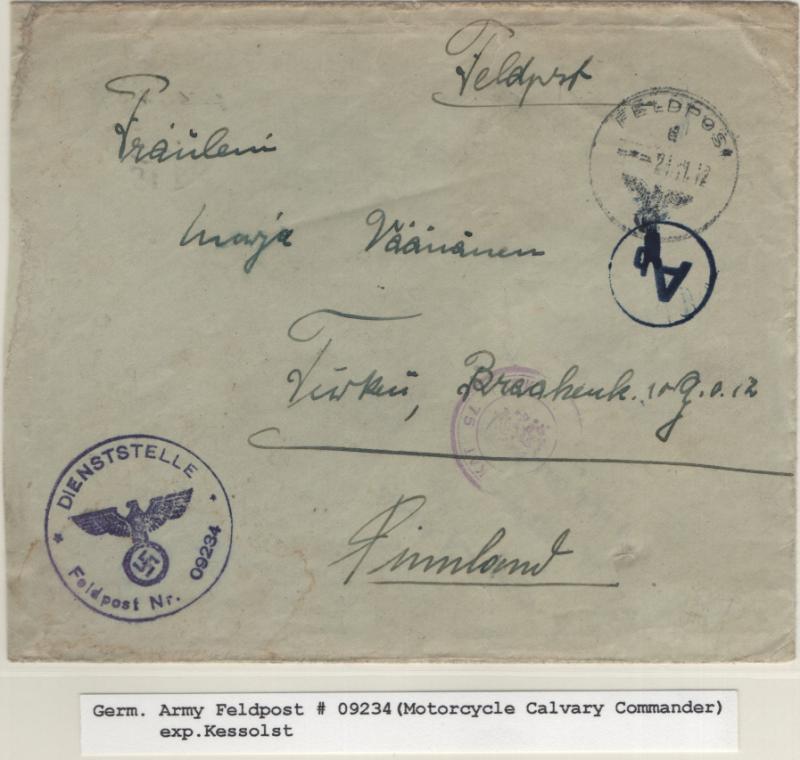 Feldpost
FELDPOST
a
21.11.42
Fräulein
Marja Väänänen
A
Turku, Braahenk. 10 g.o.12
75
DIENSTSTELLE
Feldpost Nr. 09234
Finnland
Germ. Army Feldpost # 09234(Motorcycle Calvary Commander)
exp.Kessolst